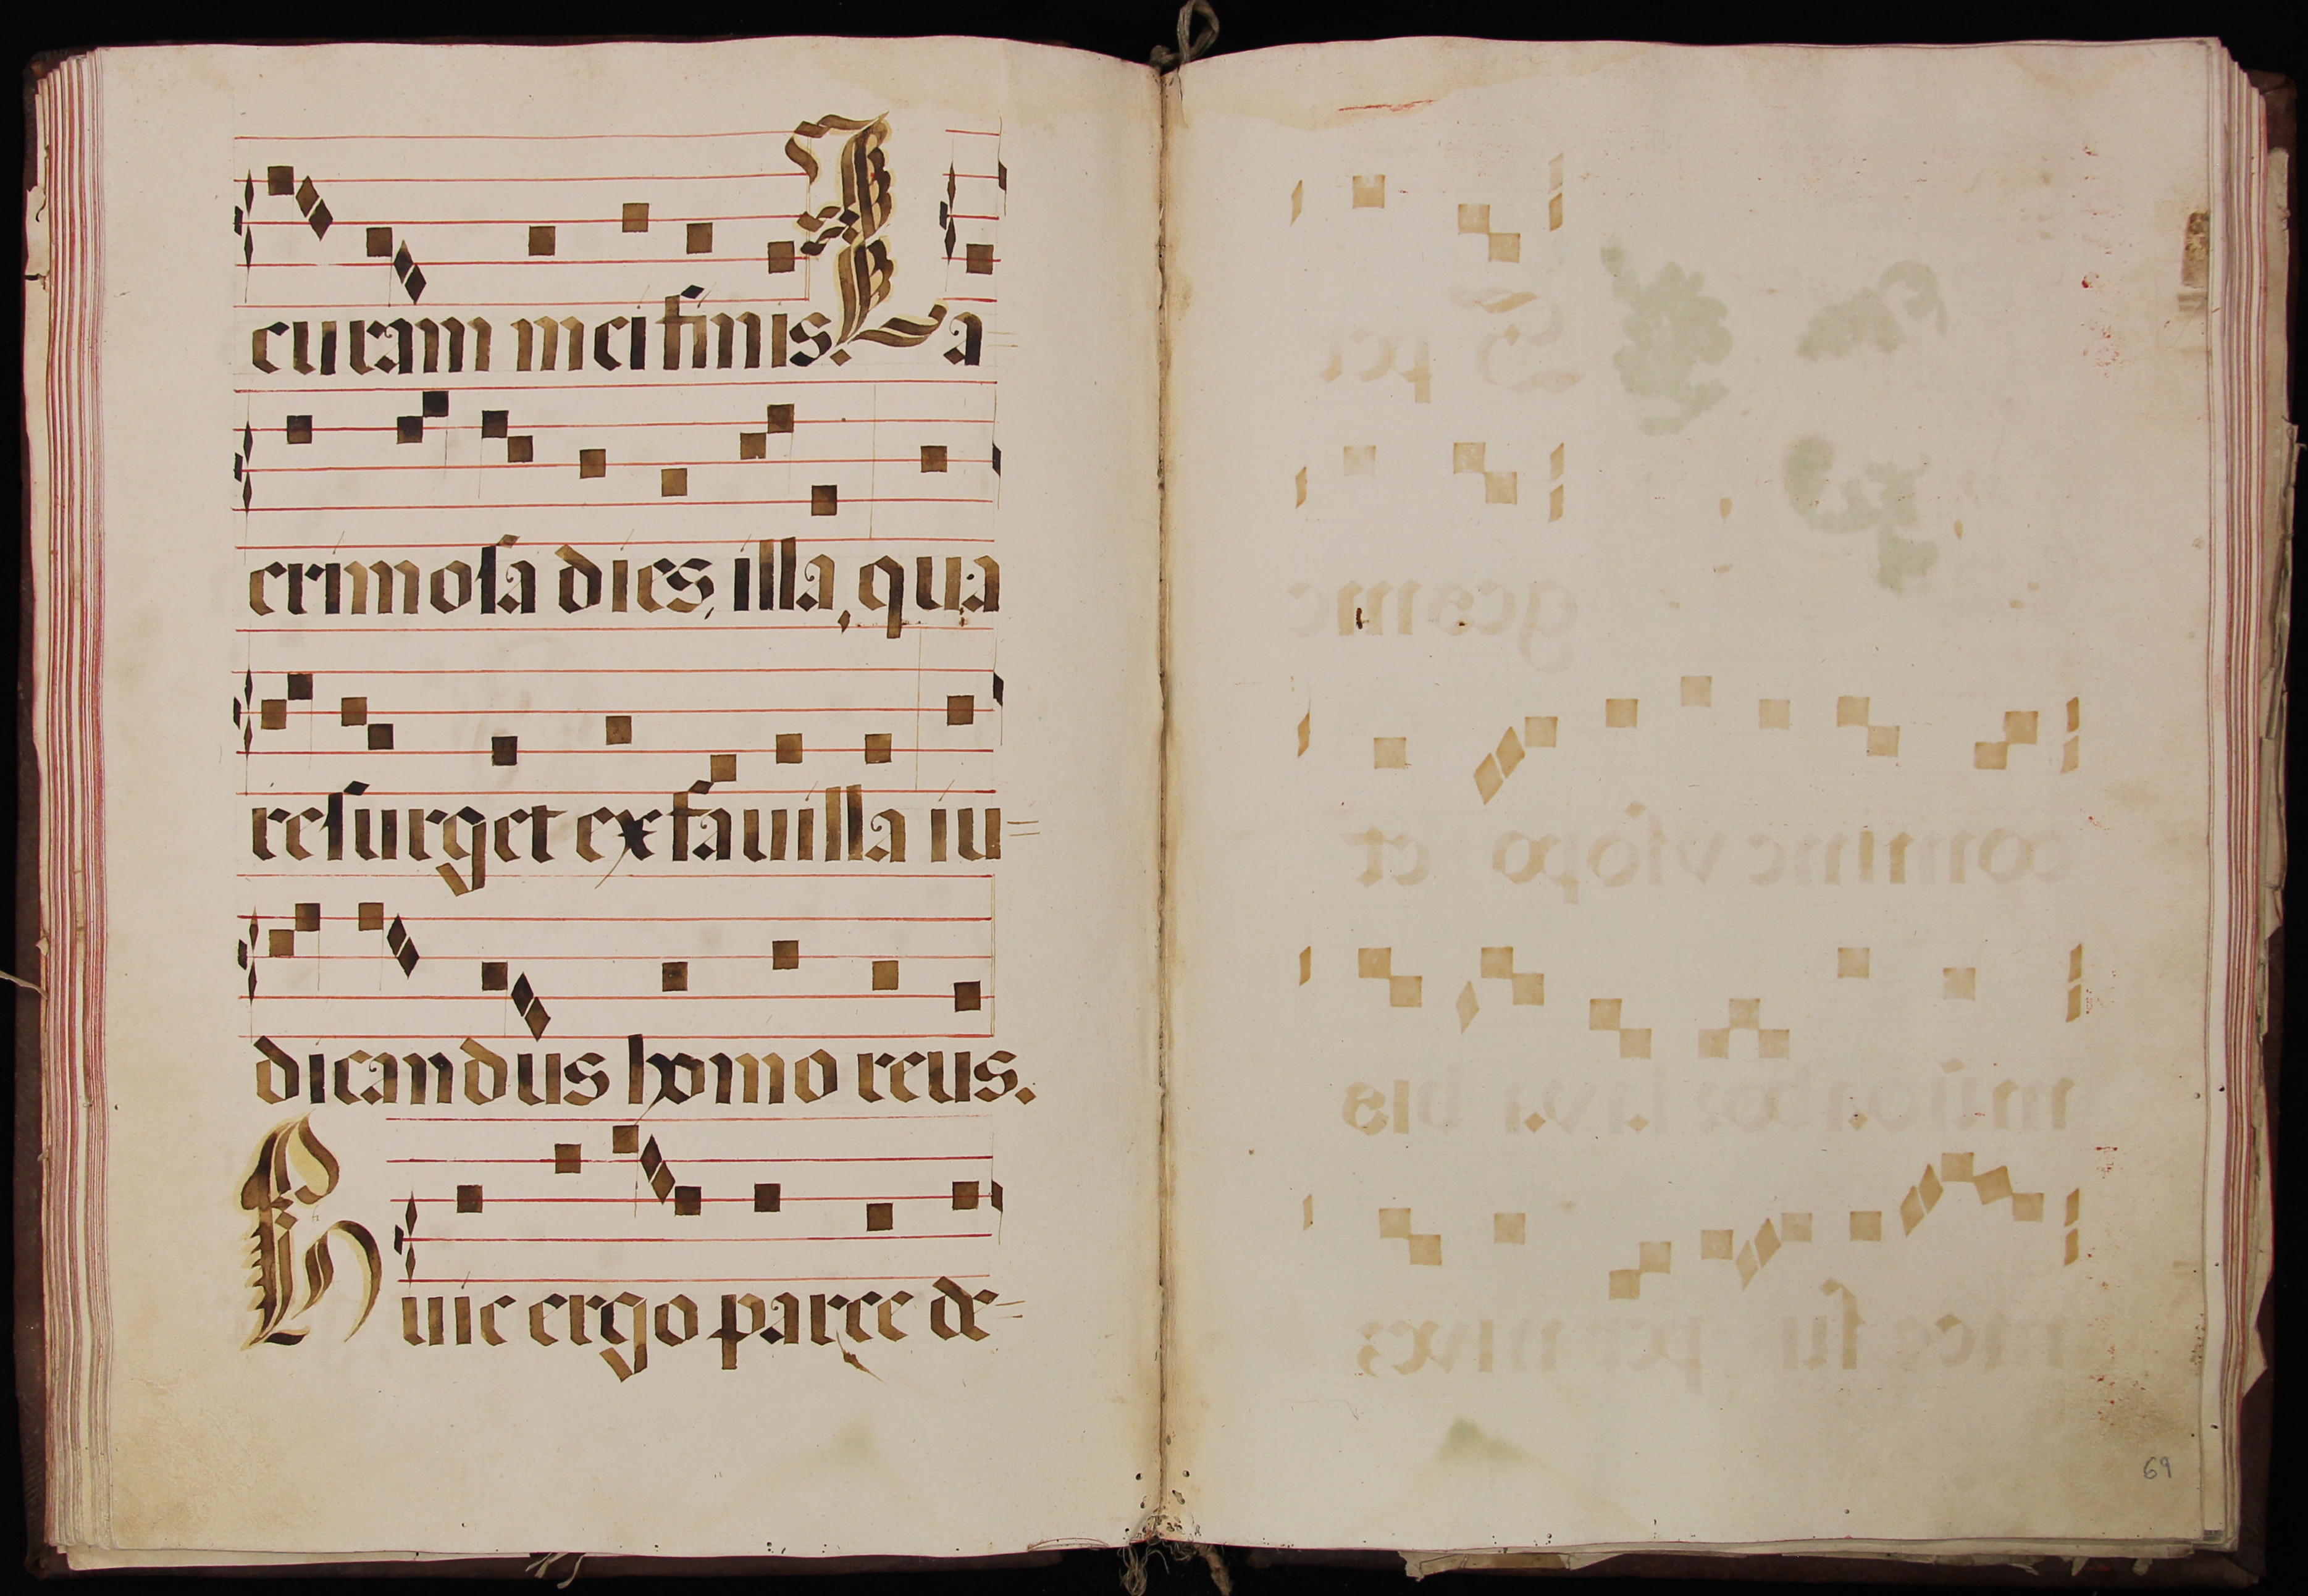 curam mei finis. La=
crimoſa dies, illa, qua
reſurget ex fauilla iu=
dicandus homo reus.
Huic ergo parce de=
69